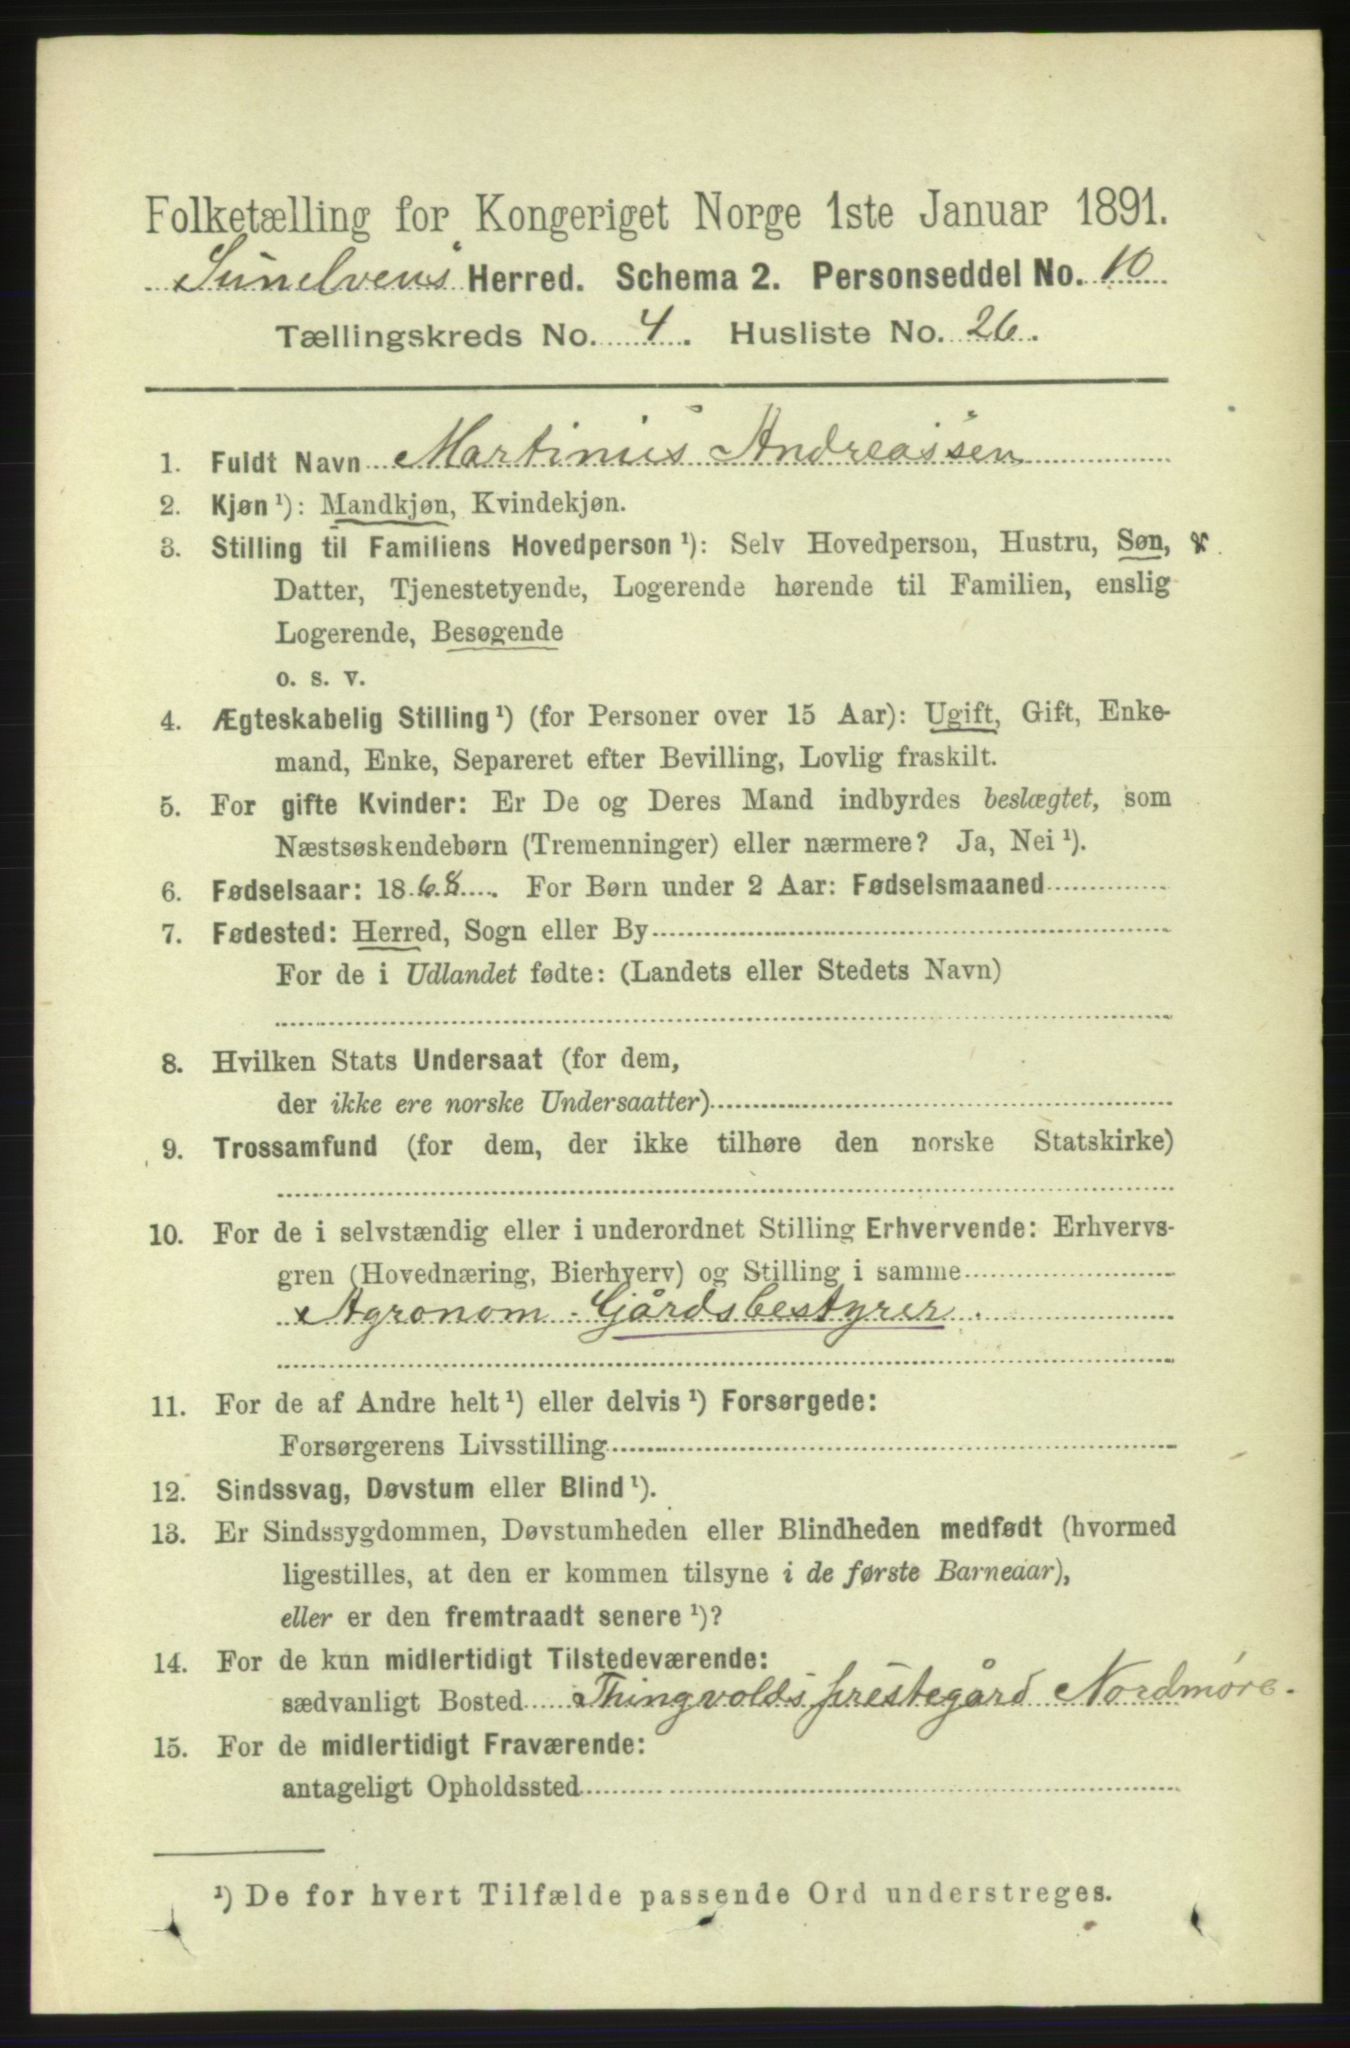 Folketælling for Kongeriget Norge 1ste Januar 1891.
Sunelvens Herred. Schema 2. Personseddel No. 10
Tællingskreds No. 4. Husliste No. 26.
1. Fuldt Navn Martinius Andreassen
2. Kjøn ¹): Mandkjøn, Kvindekjøn.
3. Stilling til Familiens Hovedperson ¹): Selv Hovedperson, Hustru, Søn,
Datter, Tjenestetyende, Logerende hørende til Familien, enslig
Logerende, Besøgende
o. s. v.
4. Ægteskabelig Stilling ¹) (for Personer over 15 Aar): Ugift, Gift, Enke-
mand, Enke, Separeret efter Bevilling, Lovlig fraskilt.
5. For gifte Kvinder: Er De og Deres Mand indbyrdes beslægtet, som
Næstsøskendebørn (Tremenninger) eller nærmere? Ja, Nei ¹).
6. Fødselsaar: 1868. For Børn under 2 Aar: Fødselsmaaned
7. Fødested: Herred, Sogn eller By
For de i Udlandet fødte: (Landets eller Stedets Navn)
8. Hvilken Stats Undersaat (for dem,
der ikke ere norske Undersaatter)
9. Trossamfund (for dem, der ikke tilhøre den norske Statskirke)
10. For de i selvstændig eller i underordnet Stilling Erhvervende: Erhvervs-
gren (Hovednæring, Bierhverv) og Stilling i samme
Agronom - Gjårdsbestyrer.
11. For de af Andre helt ¹) eller delvis ¹) Forsørgede:
Forsørgerens Livsstilling
12. Sindssvag, Døvstum eller Blind ¹).
13. Er Sindssygdommen, Døvstumheden eller Blindheden medfødt (hvormed
ligestilles, at den er kommen tilsyne i de første Barneaar),
eller er den fremtraadt senere ¹)?
14. For de kun midlertidigt Tilstedeværende:
sædvanligt Bosted Thingvolds prestegård Nordmøre.
15. For de midlertidigt Fraværende:
antageligt Opholdssted
¹) De for hvert Tilfælde passende Ord understreges.